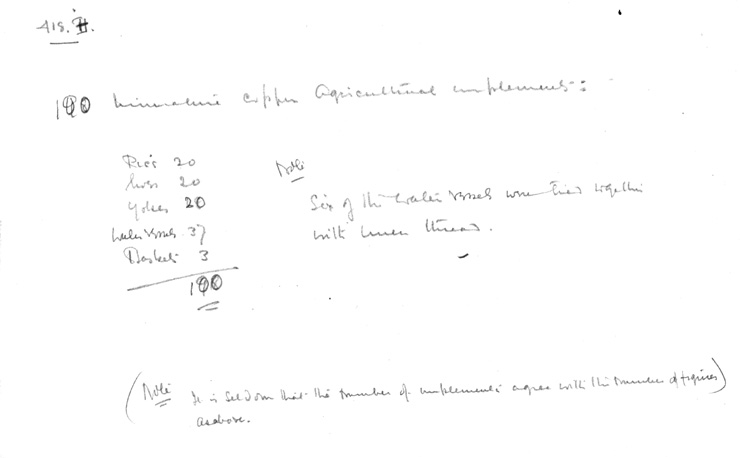 418. H.
100 miniature copper agricultural implements:
Picks 20
hoes 20
Yokes 20
Water vessels 37
Baskets 3
100
Note
Six of the water vessels were tied together
with linen thread.
(Note It is seldom that the number of implements agree with the number of figures)
as above.